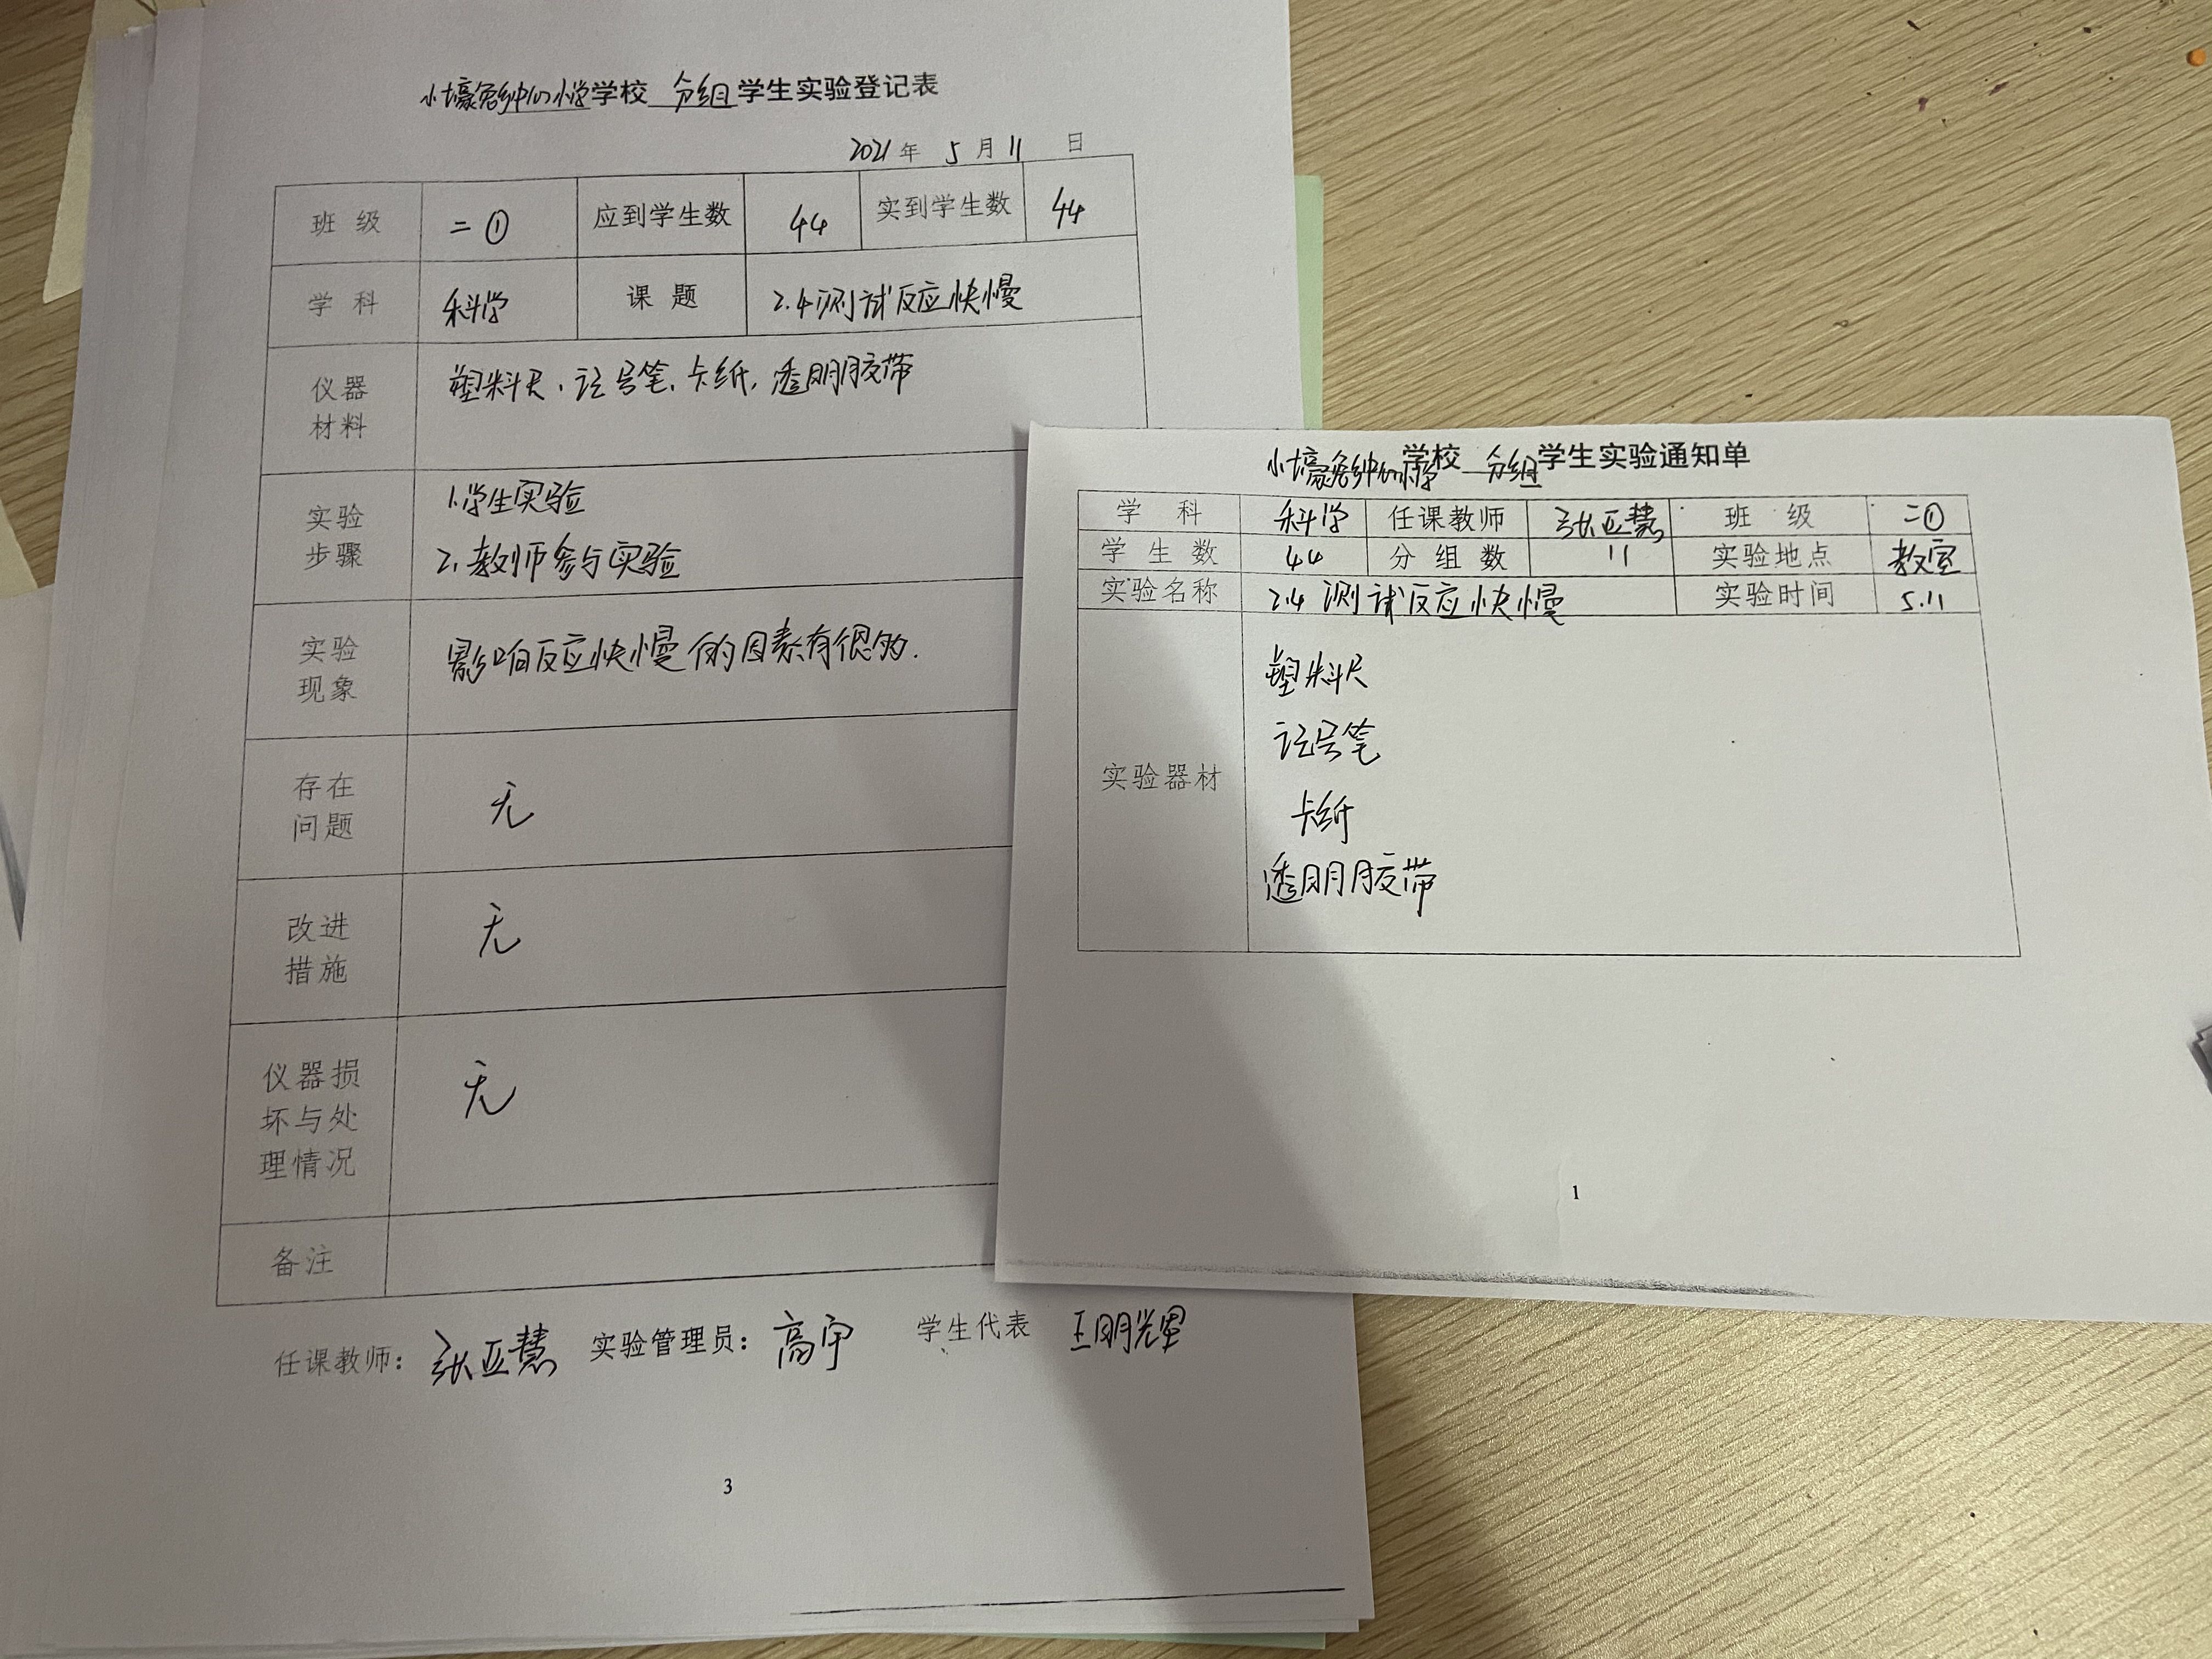 小壕兔乡中心小学学校 分组学生实验登记表
2021年 5月11 日
班 级 二① 应到学生数 44 实到学生数 44
学 科 科学 课 题 2.4测试反应快慢
仪器
材料
塑料尺、记号笔、卡纸、透明胶带
实验
步骤
1.学生实验
2.教师参与实验
实验
现象
影响反应快慢的因素有很多.
存在
问题
无
改进
措施
无
仪器损
坏与处
理情况
无
备注
任课教师：张亚慧 实验管理员：高宇 学生代表 王明光
3
小壕兔乡中心小学学校 分组学生实验通知单
学 科 科学 任课教师 张亚慧 班 级 二①
学 生 数 44 分 组 数 11 实验地点 教室
实验名称 2.4 测试反应快慢 实验时间 5.11
实验器材
塑料尺
记号笔
卡纸
透明胶带
1